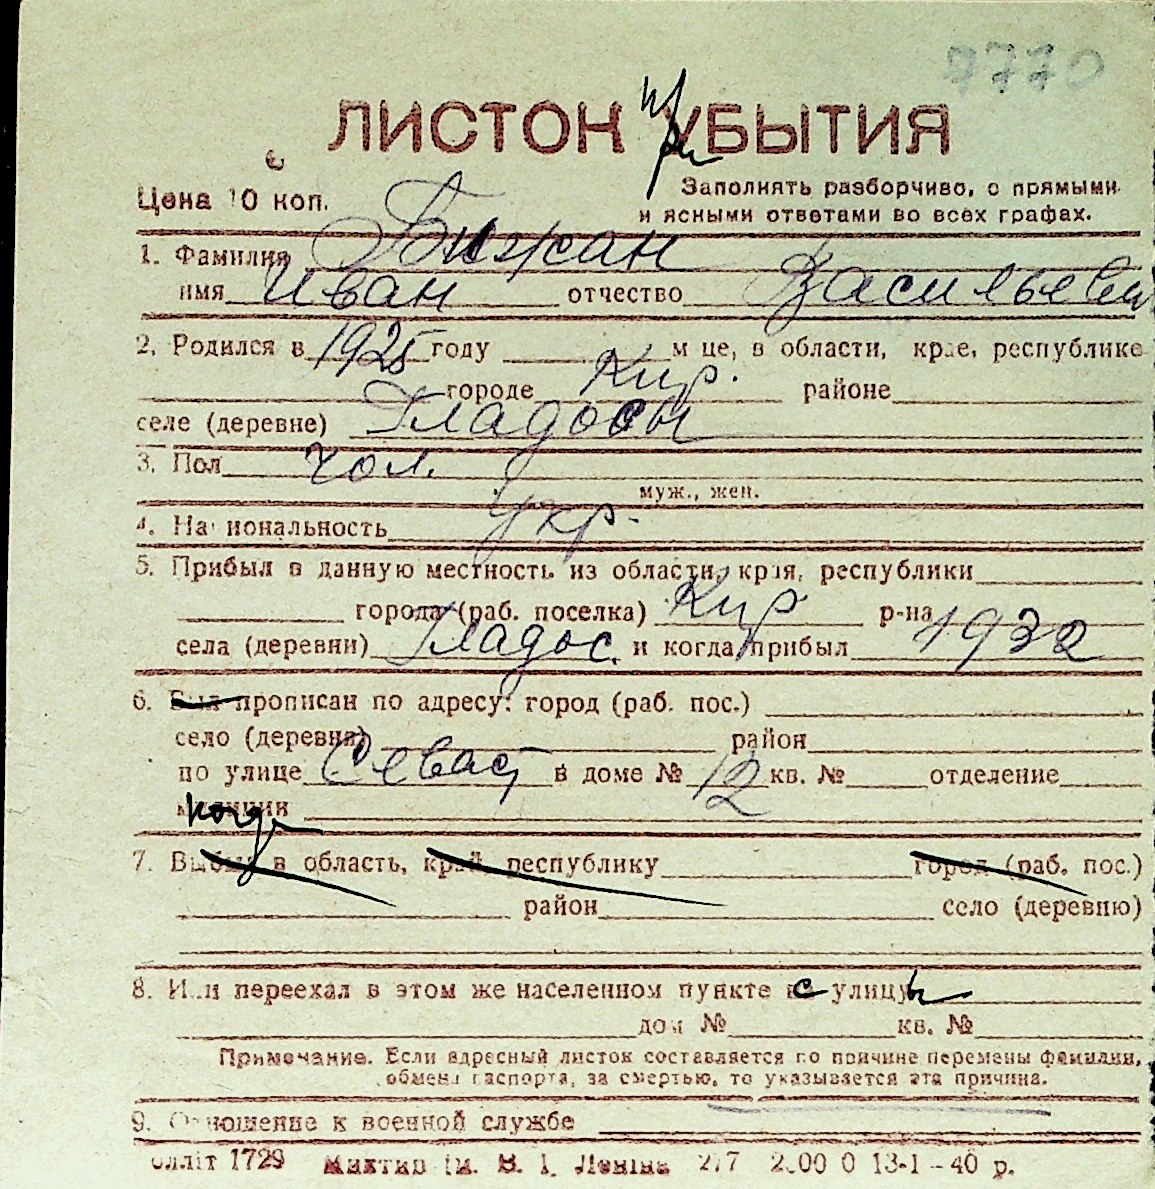 7770
ЛИСТОК УБЫТИЯ
при
Цена 10 коп.
Заполнять разборчиво, с прямыми
и ясными ответами во всех графах.
1. Фамилия Бижан
имя Иван отчество Васильевич
2. Родился в 1925 году м-це, в области, крае, республике
городе Кир. районе
селе (деревне) Гладосы
3. Пол чол.
муж., жен.
4. Национальность укр.
5. Прибыл в данную местность из области, края, республики
города (раб. поселка) Кир р-на
села (деревни) Гладос. и когда прибыл 1932
6. Был прописан по адресу: город (раб. пос.)
село (деревня) район
по улице Севаст в доме № 12 кв. № отделение
милиции
когда
7. Выбыл в область, край, республику город (раб. пос.)
район село (деревню)
8. Или переехал в этом же населенном пункте с улицы
дом № кв. №
Примечание. Если адресный листок составляется по причине перемены фамилии,
обмена паспорта, за смертью, то указывается эта причина.
9. Отношение к военной службе
олліт 1729 ім. В. І. Леніна 277 13-1-40 р.